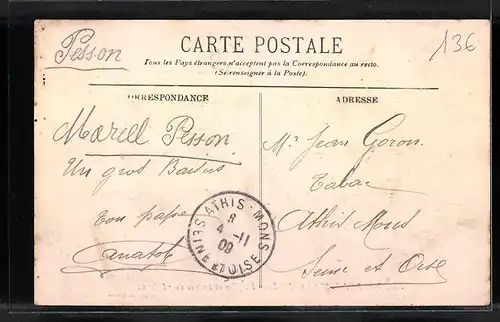 Pesson
CARTE POSTALE
136
Tous les Pays étrangers n'acceptent pas la Correspondance au recto.
(Se renseigner à la Poste).
ORRESPONDANCE
ADRESSE
Marcel Pesson
Un gros
Ton papa
Anatole
Mr Jean Goron
Tabac
Athis Mons
Seine et Oise
ATHIS-MONS
8
4 -11
09
SEINE ET OISE